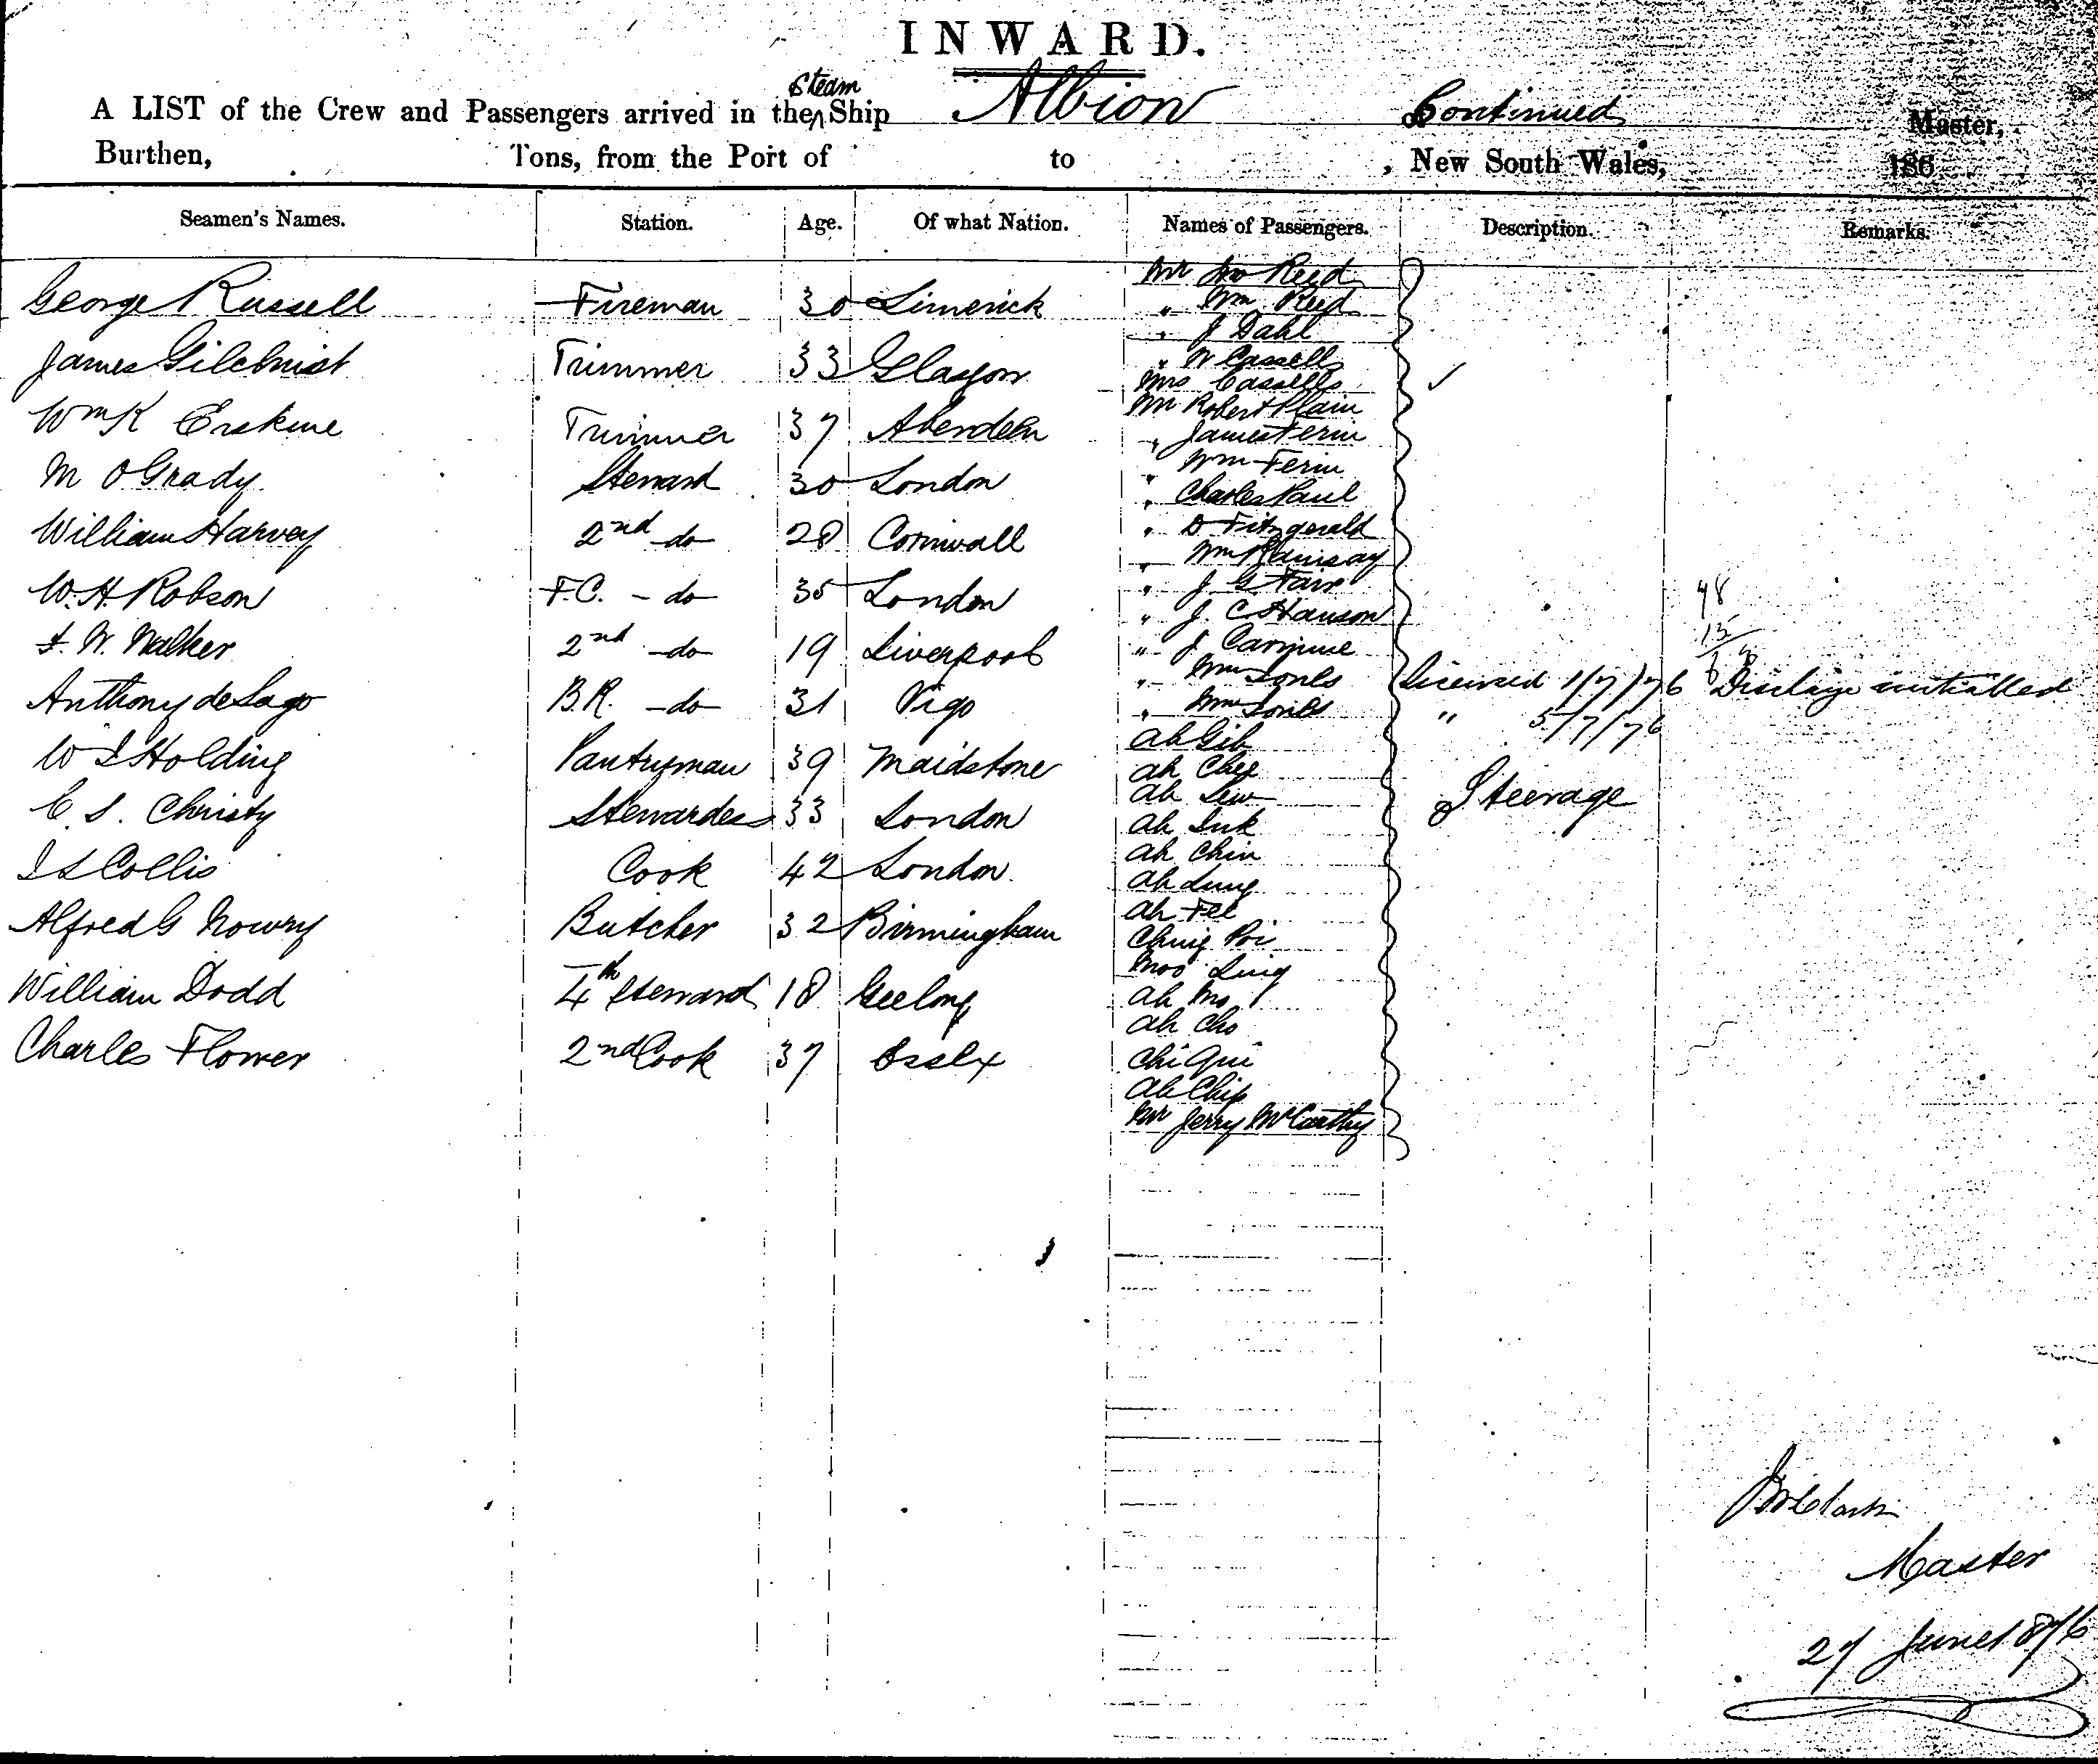 INWARD.
Steam
A LIST of the Crew and Passengers arrived in the Ship Albion Continued Master,
Burthen, Tons, from the Port of to , New South Wales, 186
Seamen's Names. Station. Age. Of what Nation. Names of Passengers. Description. Remarks.
George Russell Fireman 30 Limerick
James Gilchrist Trimmer 33 Glasgow
Wm K Erskine Trimmer 37 Aberdeen
M O Grady Steward 30 London
William Harvey 2nd do 28 Cornwall
W. H. Robson F.C. - do 35 London
F. W. Walker 2nd - do 19 Liverpool
Anthony de Lago B.R. - do 31 Vigo
W I Holding Pantryman 39 Maidstone
C. S. Christy Stewardess 33 London
I S Collis Cook 42 London
Alfred G Nowry Butcher 32 Birmingham
William Dodd 4th Steward 18 Geelong
Charles Flower 2nd Cook 37 Essex
Mr Jno Reed
" Wm Reed
" J Dahl
" W Cassells
Mrs Cassells
Mr Robert Plain
" James Ferin
" Wm Ferin
" Charles Paul
" D Fitzgerald
" Wm Ramsay
" J G Fair
" J. C Hanson
" J
" Wm Jones
" Wm Jones
Ah Gib
Ah Chee
Ah Lew
Ah Luk
Ah Chin
Ah Lung
Ah Fee
Chung Poi
Moo Ling
Ah Mo
Ah Cho
Chi Qui
Ah Chip
Mr Jerry McCarthy
48
15
Licensed 1/7/76 Discharge initialled
" 5/7/76
Steerage
Master
27 June 1876